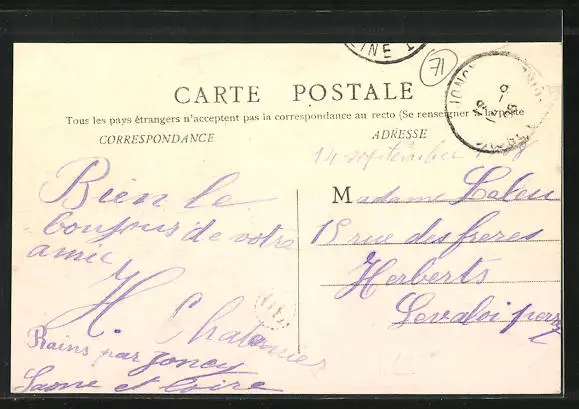 INE
71
JONCY
CARTE POSTALE
Tous les pays étrangers n'acceptent pas la correspondance au recto (Se renseigner à la poste
CORRESPONDANCE
ADRESSE
14 septembre
Bien le
bonjour de votre
amie
H Chatenier
Rains par Joncy
Saone et Loire
Madame Lebeu
15 rue des freres
Herberts
Levaloi perre